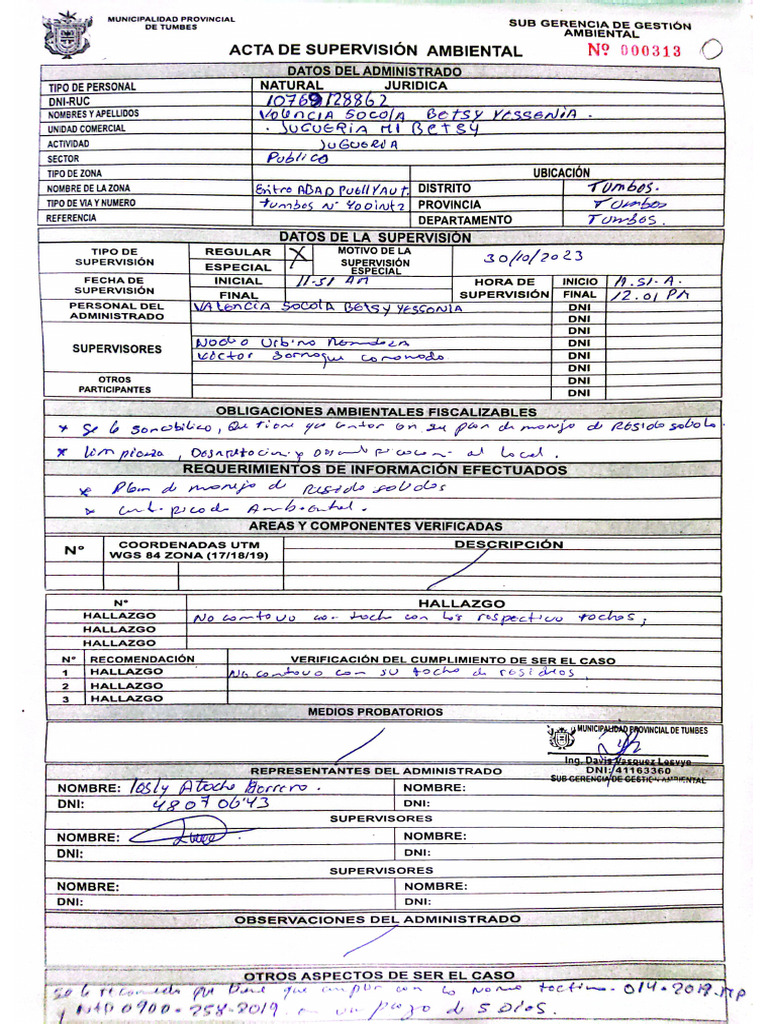 MUNICIPALIDAD PROVINCIAL
DE TUMBES
SUB GERENCIA DE GESTIÓN
AMBIENTAL
ACTA DE SUPERVISIÓN AMBIENTAL
Nº 000313
DATOS DEL ADMINISTRADO
TIPO DE PERSONAL NATURAL JURIDICA
DNI-RUC
NOMBRES Y APELLIDOS Valencia Socola Betsy Yessenia.
UNIDAD COMERCIAL . Jugueria Mi Betsy
ACTIVIDAD Jugueria
SECTOR Publico
TIPO DE ZONA UBICACIÓN
NOMBRE DE LA ZONA DISTRITO Tumbes.
TIPO DE VIA Y NUMERO Tumbes Nº 400 int 2 PROVINCIA Tumbes
REFERENCIA DEPARTAMENTO Tumbes.
DATOS DE LA SUPERVISIÓN
TIPO DE SUPERVISIÓN REGULAR X MOTIVO DE LA SUPERVISIÓN ESPECIAL 30/10/2023
ESPECIAL
FECHA DE SUPERVISIÓN INICIAL 11.51 AM HORA DE SUPERVISIÓN INICIO 11.51.A.
FINAL FINAL 12.01 PM
PERSONAL DEL ADMINISTRADO Valencia Socola Betsy Yessenia DNI
DNI
DNI
SUPERVISORES DNI
Victor Coronado DNI
DNI
OTROS PARTICIPANTES DNI
DNI
OBLIGACIONES AMBIENTALES FISCALIZABLES
* Se le que tiene que contar con su plan de manejo de Residuo solido
* Limpieza, al local.
REQUERIMIENTOS DE INFORMACIÓN EFECTUADOS
* Plan de manejo de Residuo solidos
* Ambiental.
AREAS Y COMPONENTES VERIFICADAS
Nº COORDENADAS UTM WGS 84 ZONA (17/18/19) DESCRIPCIÓN
Nº HALLAZGO
HALLAZGO No contavo con tacho con los respectivo tachos,
HALLAZGO
HALLAZGO
Nº RECOMENDACIÓN VERIFICACIÓN DEL CUMPLIMIENTO DE SER EL CASO
1 HALLAZGO No contavo con su tacho de residuos,
2 HALLAZGO
3 HALLAZGO
MEDIOS PROBATORIOS
MUNICIPALIDAD PROVINCIAL DE TUMBES
Ing. Davis Vasquez
DNI: 41163360
SUB GERENCIA DE GESTIÓN AMBIENTAL
REPRESENTANTES DEL ADMINISTRADO
NOMBRE: Atoche NOMBRE:
DNI: 48070643 DNI:
SUPERVISORES
NOMBRE: NOMBRE:
DNI: DNI:
SUPERVISORES
NOMBRE: NOMBRE:
DNI: DNI:
OBSERVACIONES DEL ADMINISTRADO
OTROS ASPECTOS DE SER EL CASO
Se le recomienda que tiene que cumplir con la Norma 014-2019-
y NTP 0900-258-2019. en un plazo de 5 Dias.